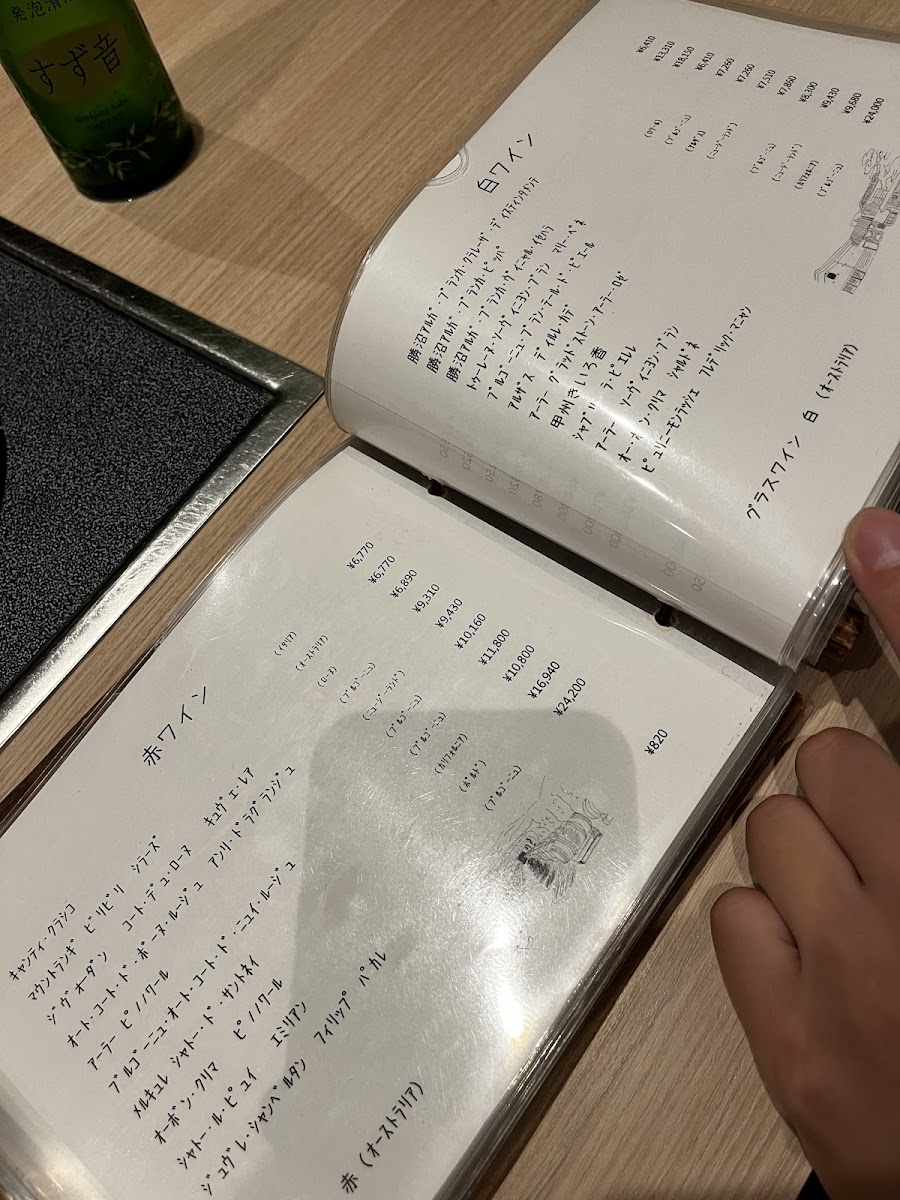 発泡清
すず音
Sparkling Sake
白ワイン
勝沼ｱﾙｶﾞ･ﾌﾞﾗﾝｶ･ｸﾗﾚｰｻﾞ･ﾃﾞｨｽﾃｨﾝﾀﾒﾝﾃ ¥6,410
勝沼ｱﾙｶﾞ･ﾌﾞﾗﾝｶ･ﾋﾟｯﾊﾟ ¥13,310
勝沼ｱﾙｶﾞ･ﾌﾞﾗﾝｶ･ｳﾞｨﾆｬﾙ･ｲｾﾊﾗ ¥18,150
ﾄｩｰﾚｰﾇ･ｿｰｳﾞｨﾆﾖﾝ･ﾌﾞﾗﾝ ﾏﾘｰ･ﾍﾞﾈ (ﾛﾜｰﾙ) ¥6,410
ﾌﾞﾙｺﾞｰﾆｭ･ﾌﾞﾗﾝ･ﾃｰﾙ･ﾄﾞ･ﾋﾟｴｰﾙ (ﾌﾞﾙｺﾞｰﾆｭ) ¥7,260
ｱﾙｻﾞｽ･ﾃﾞｨｲﾙﾚ･ｶﾃﾞ (ｱﾙｻﾞｽ) ¥7,260
ｱｰﾗｰ ｸﾞﾗｯﾄﾞｽﾄｰﾝ･ｱｰﾗｰ･ﾛｾﾞ (ﾆｭｰｼﾞｰﾗﾝﾄﾞ) ¥7,510
甲州きいろ香 ¥7,860
ｼｬﾌﾞﾘ ﾗ･ﾋﾟｴﾚﾚ (ﾌﾞﾙｺﾞｰﾆｭ) ¥8,300
ｱｰﾗｰ ｿｰｳﾞｨﾆﾖﾝ･ﾌﾞﾗﾝ (ﾆｭｰｼﾞｰﾗﾝﾄﾞ) ¥9,430
ｵｰ･ﾎﾞﾝ･ｸﾘﾏ ｼｬﾙﾄﾞﾈ (ｶﾘﾌｫﾙﾆｱ) ¥9,680
ﾋﾟｭﾘﾆｰﾓﾝﾗｯｼｪ ﾌﾚﾃﾞﾘｯｸ･ﾏﾆｬﾝ (ﾌﾞﾙｺﾞｰﾆｭ) ¥24,000
グラスワイン 白 (ｵｰｽﾄﾗﾘｱ)
赤ワイン
ｷｬﾝﾃｨ･ｸﾗｼｺ (ｲﾀﾘｱ) ¥6,770
ﾏｳﾝﾄﾗﾝｷﾞ ﾋﾞﾘﾋﾞﾘ ｼﾗｰｽﾞ (ｵｰｽﾄﾗﾘｱ) ¥6,770
ｼﾞｳﾞｵｰﾀﾞﾝ ｺｰﾄ･ﾃﾞｭ･ﾛｰﾇ ｷｭｳﾞｴ･ﾚｱ (ﾛｰﾇ) ¥6,890
ｵｰﾄ･ｺｰﾄ･ﾄﾞ･ﾎﾞｰﾇ･ﾙｰｼﾞｭ ｱﾝﾘ･ﾄﾞﾗｸﾞﾗﾝｼﾞｭ (ﾌﾞﾙｺﾞｰﾆｭ) ¥9,310
ｱｰﾗｰ ﾋﾟﾉﾉﾜｰﾙ (ﾆｭｰｼﾞｰﾗﾝﾄﾞ) ¥9,430
ﾌﾞﾙｺﾞｰﾆｭ･ｵｰﾄ･ｺｰﾄ･ﾄﾞ･ﾆｭｲ･ﾙｰｼﾞｭ (ﾌﾞﾙｺﾞｰﾆｭ) ¥10,160
ﾒﾙｷｭﾚ ｼｬﾄｰ･ﾄﾞ･ｻﾝﾄﾈｲ (ﾌﾞﾙｺﾞｰﾆｭ) ¥11,800
ｵｰﾎﾞﾝ･ｸﾘﾏ ﾋﾟﾉﾉﾜｰﾙ (ｶﾘﾌｫﾙﾆｱ) ¥10,800
ｼｬﾄｰ･ﾙ･ﾋﾟｭｲ ｴﾐﾘｱﾝ (ﾎﾞﾙﾄﾞｰ) ¥16,940
ｼﾞｭｳﾞﾚ･ｼｬﾝﾍﾞﾙﾀﾝ ﾌｨﾘｯﾌﾟ ﾊﾟｶﾚ (ﾌﾞﾙｺﾞｰﾆｭ) ¥24,200
赤 (ｵｰｽﾄﾗﾘｱ) ¥820